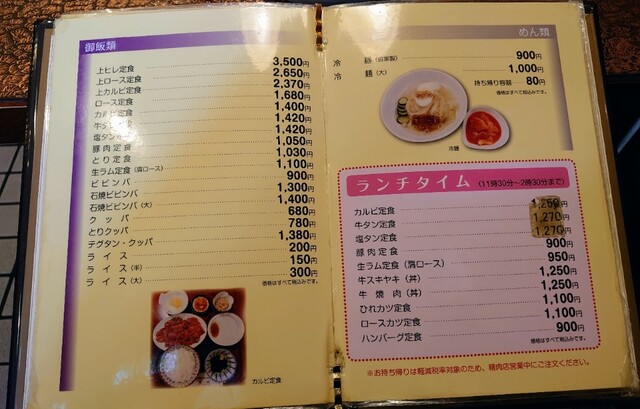 御飯類
上ヒレ定食 3,500円
上ロース定食 2,650円
上カルビ定食 2,370円
ロース定食 1,680円
カルビ定食 1,400円
牛タン定食 1,420円
塩タン定食 1,420円
豚肉定食 1,050円
とり定食 1,030円
生ラム定食(肩ロース) 1,100円
ビビンバ 900円
石焼ビビンバ 1,300円
石焼ビビンバ(大) 1,400円
クッパ 680円
とりクッパ 780円
テグタン・クッパ 1,380円
ライス 200円
ライス(半) 150円
ライス(大) 300円
価格はすべて税込みです。
カルビ定食
めん類
冷麺(自家製) 900円
冷麺(大) 1,000円
持ち帰り容器 80円
価格はすべて税込みです。
冷麺
ランチタイム(11時30分〜2時30分まで)
カルビ定食 1,250円
牛タン定食 1,270円
塩タン定食 1,270円
豚肉定食 900円
生ラム定食(肩ロース) 950円
牛スキヤキ(丼) 1,250円
牛焼肉(丼) 1,250円
ひれカツ定食 1,100円
ロースカツ定食 1,100円
ハンバーグ定食 900円
価格はすべて税込みです。
※お持ち帰りは軽減税率対象のため、精肉店営業中にご注文ください。